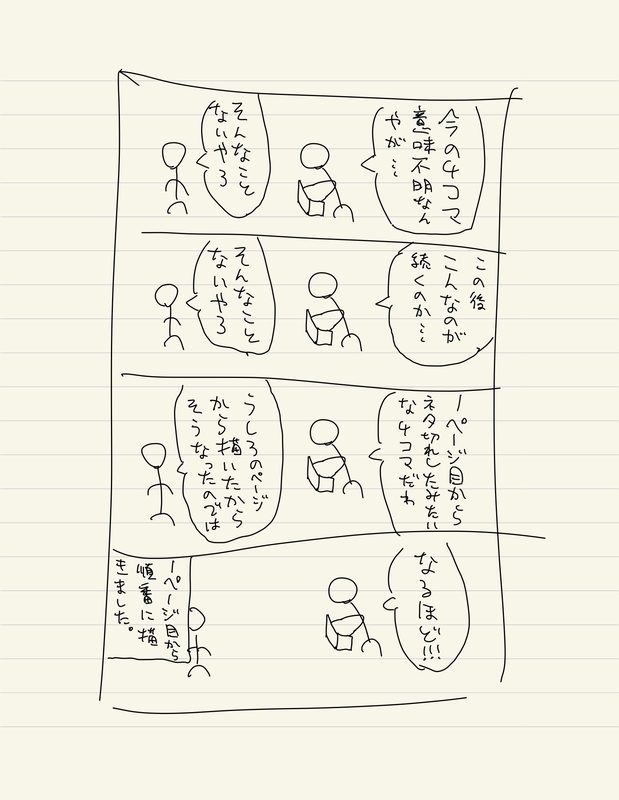 今の4コマ
意味不明なん
やが…
そんなこと
ないやろ
この後
こんなのが
続くのか…
そんなこと
ないやろ
1ページ目から
ネタ切れしたみたい
な4コマだわ
うしろのページ
から描いたから
そうなったのでは
なるほど!!!
1ページ目から
慎番に描
きました。